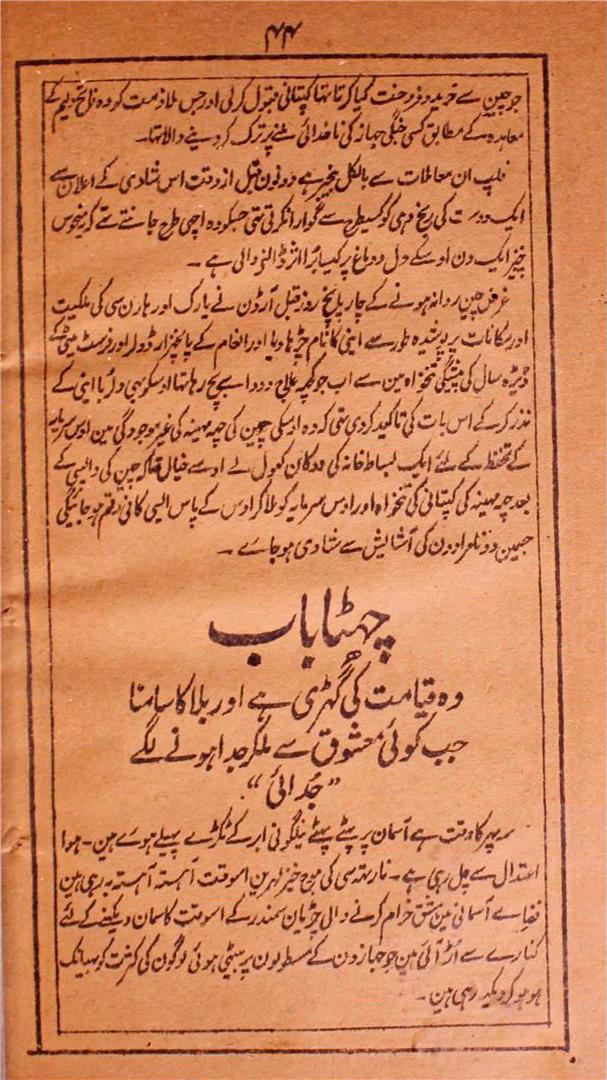 ۴۴
جو چین سے خرید و فروخت کیا کرتا تھا کپتانی قبول کرلی اور جس ملازمت کو وہ فلپ کے
معاہدہ کے مطابق کسی جنگی جہاز کی ناخدائی ملنے پر ترک کر دینے والا تھا۔
فلپ ان معاملات سے بالکل بیخبر ہے دونون قبل از وقت اس شادی کے اعلان سے
ایک دوست کی رنج دہی کو کسیطرح سے گوارا نکرتی تھی جسکو وہ اچھی طرح جانتے تھے کہ یہ منحوس
چیز ایک دن اوسکے دل و دماغ پر کیسا برا اثر ڈالنی والی ہے ۔
غرض چین روانہ ہونے کے چار پانچ روز قبل آرڈن نے پارک اور ہارنسی کی ملکیت
اور مکانات پر پوشیدہ طور سے اینی کا نام چڑھا دیا اور انعام کے پانچہزار ڈولر اور فرسٹ میٹی کے
ڈیڑہ سال کی پیشگی تنخواہ مین سے اب جو کچھ علاج و دوا سے بچ رہا تھا اوسکو بھی دلربا اینی کے
نذر کر کے اس بات کی تاکید کر دی تھی کہ وہ اوسکی چین کی چھہ مہینہ کی غیر موجودگی مین اوس سرمایہ
کے تحفظ کے لئے ایک بساط خانہ کی دوکان کھول لے اوسے خیال تھا کہ چین کی واپسی کے
بعد چھہ مہینہ کی کپتانی کی تنخواہ اور اوس سرمایہ کو ملا کر اوس کے پاس ایسی کافی رقم ہو جائیگی
جسمین دو نامرادون کی آسایش سے شادی ہو جاے ۔
چھٹا باب
وہ قیامت کی گھڑی ہے اور بلا کا سامنا
جب کوئی معشوق سے ملکر جدا ہونے لگے
“جُدائی”
سہ پہر کا وقت ہے آسمان پر پھٹے پھٹے نیلگونی ابر کے ٹکڑے پھیلے ہوے ہین ۔ ہوا
اعتدال سے چل رہی ہے ۔ نارتھ سی کی موج خیز لہرین اسوقت آہستہ آہستہ بہ رہی ہین
فضاے آسمانی مین مشق خرام کرنے والی چڑیان سمندر کے اسوقت کا سمان دیکھنے کے لئے
کنارے سے اُڑ آئی ہین جو جہازون کے مسطولون پر بیٹھی ہوئی لوگون کی کثرت کو بھیانک
ہو ہو کر دیکھ رہی ہین ۔